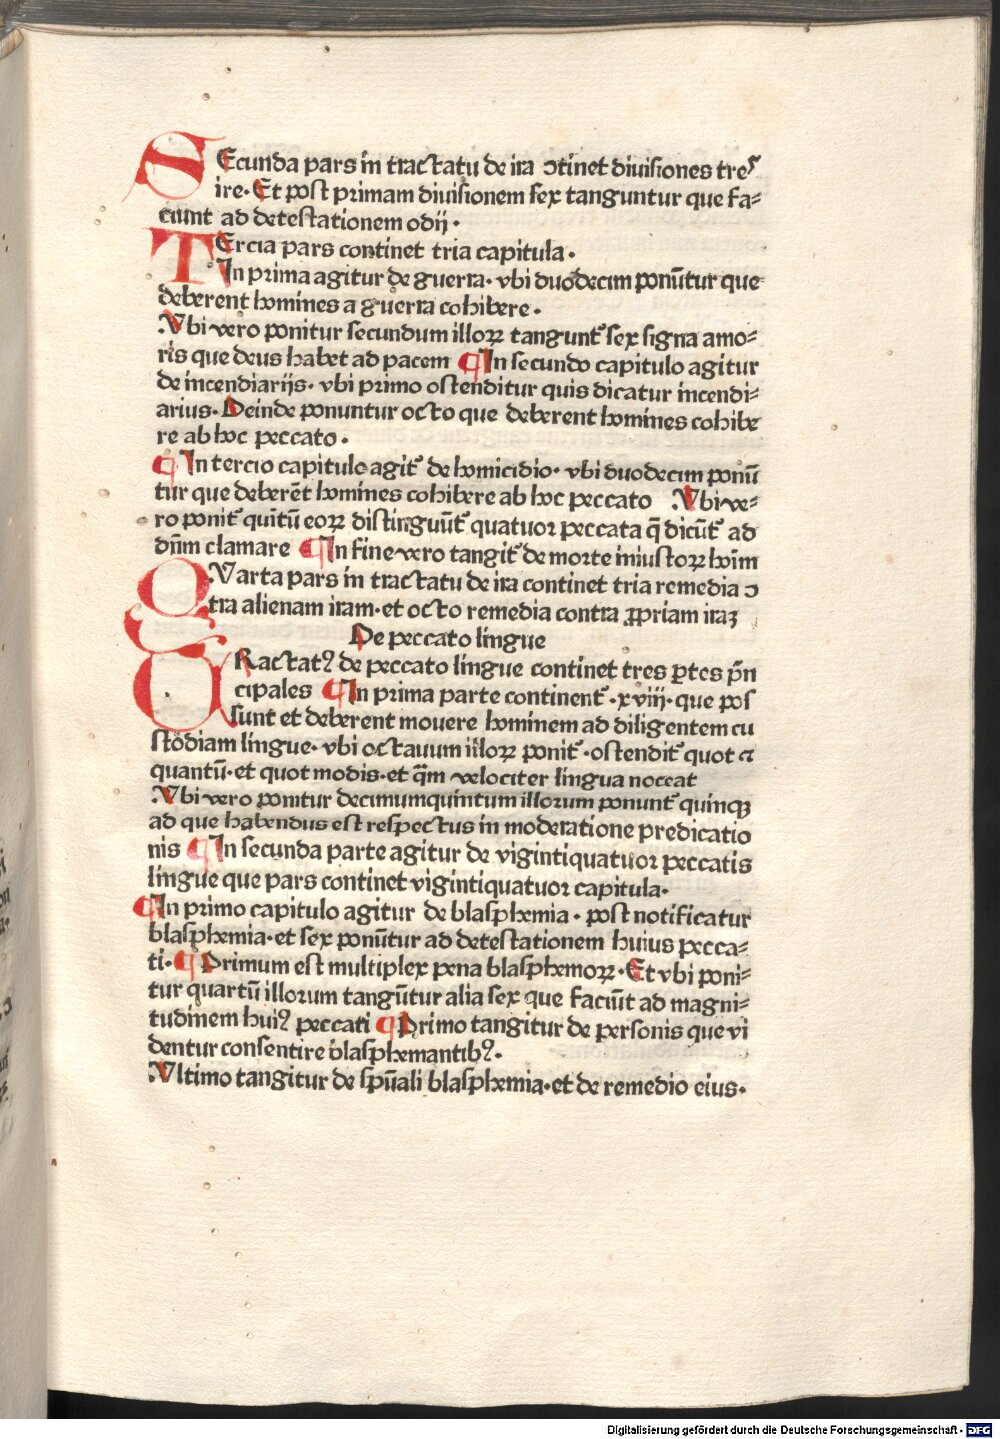 SEcunda pars in tractatu de ira ↄtinet diuisiones tres
ire. Et post primam diuisionem sex tanguntur que fa⸗
ciunt ad detestationem odij.
TErcia pars continet tria capitula.
In prima agitur de guerra. vbi duodecim ponūtur que
deberent homines a guerra cohibere.
Vbi vero ponitur secundum illoꝝ tangunt᷑ sex signa amo⸗
ris que deus habet ad pacem ¶ In secundo capitulo agitur
de incendiarijs. vbi primo ostenditur quis dicatur incendi⸗
arius. Deinde ponuntur octo que deberent homines cohibe
re ab hoc peccato.
¶ In tercio capitulo agit᷑ de homicidio. vbi duodecim ponū
tur que deberēt homines cohibere ab hoc peccato Vbi ve⸗
ro ponit᷑ quintū eoꝝ distinguūt᷑ quatuor peccata q̄ dicūt᷑ ad
dn̄m clamare ¶ In fine vero tangit᷑ de morte iniustoꝝ hoīm
QVarta pars in tractatu de ira continet tria remedia ↄ
tra alienam iram. et octo remedia contra ꝓpriam iraꝫ
De peccato lingue
TRactatꝰ de peccato lingue continet tres ꝑtes pn̄
cipales ¶ In prima parte continent᷑ .xviij. que pos
sunt et deberent mouere hominem ad diligentem cu
stōdiam lingue. vbi octauum illoꝝ ponit᷑. ostendit᷑ quot ⁊
quantū. et quot modis. et q̄m velociter lingua noceat
Vbi vero ponitur decimumquintum illorum ponunt᷑ quinqꝫ
ad que habendus est respectus in moderatione predicatio
nis ¶ In secunda parte agitur de vigintiquatuor peccatis
lingue que pars continet vigintiquatuor capitula.
¶ In primo capitulo agitur de blasphemia. post notificatur
blasphemia. et sex ponūtur ad detestationem huius pecca⸗
ti. ¶ Primum est multiplex pena blasphemoꝝ. Et vbi poni⸗
tur quartū illorum tangūtur alia sex que faciūt ad magni⸗
tudinem huiꝰ peccati ¶ Primo tangitur de personis que vi
dentur consentire blasphemantibꝰ.
Vltimo tangitur de spūali blasphemia. et de remedio eius.
Digitalisierung gefördert durch die Deutsche Forschungsgemeinschaft - DFG